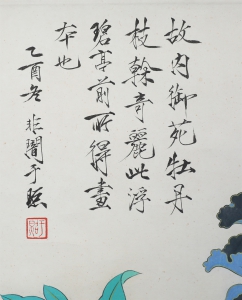 故内御苑牡丹
枝榦奇麗此浮
碧亭前所得畫
本也
乙酉冬非闇于照